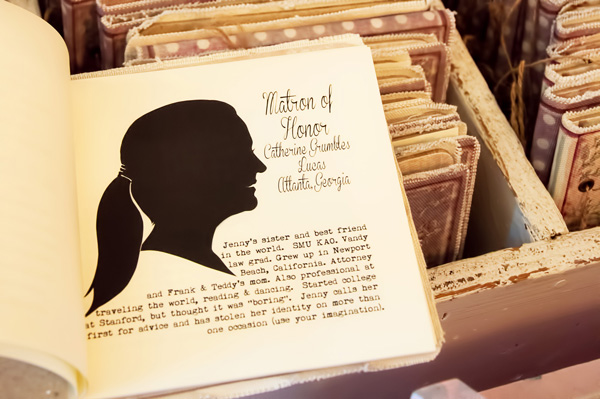 Matron of
Honor
Catherine Grumbles
Lucas
Atlanta, Georgia
Jenny's sister and best friend
in the world. SMU KAO. Vandy
law grad. Grew up in Newport
Beach, California. Attorney
and Frank & Teddy's mom. Also professional at
traveling the world, reading & dancing. Started college
at Stanford, but thought it was "boring". Jenny calls her
first for advice and has stolen her identity on more than
one occasion (use your imagination).